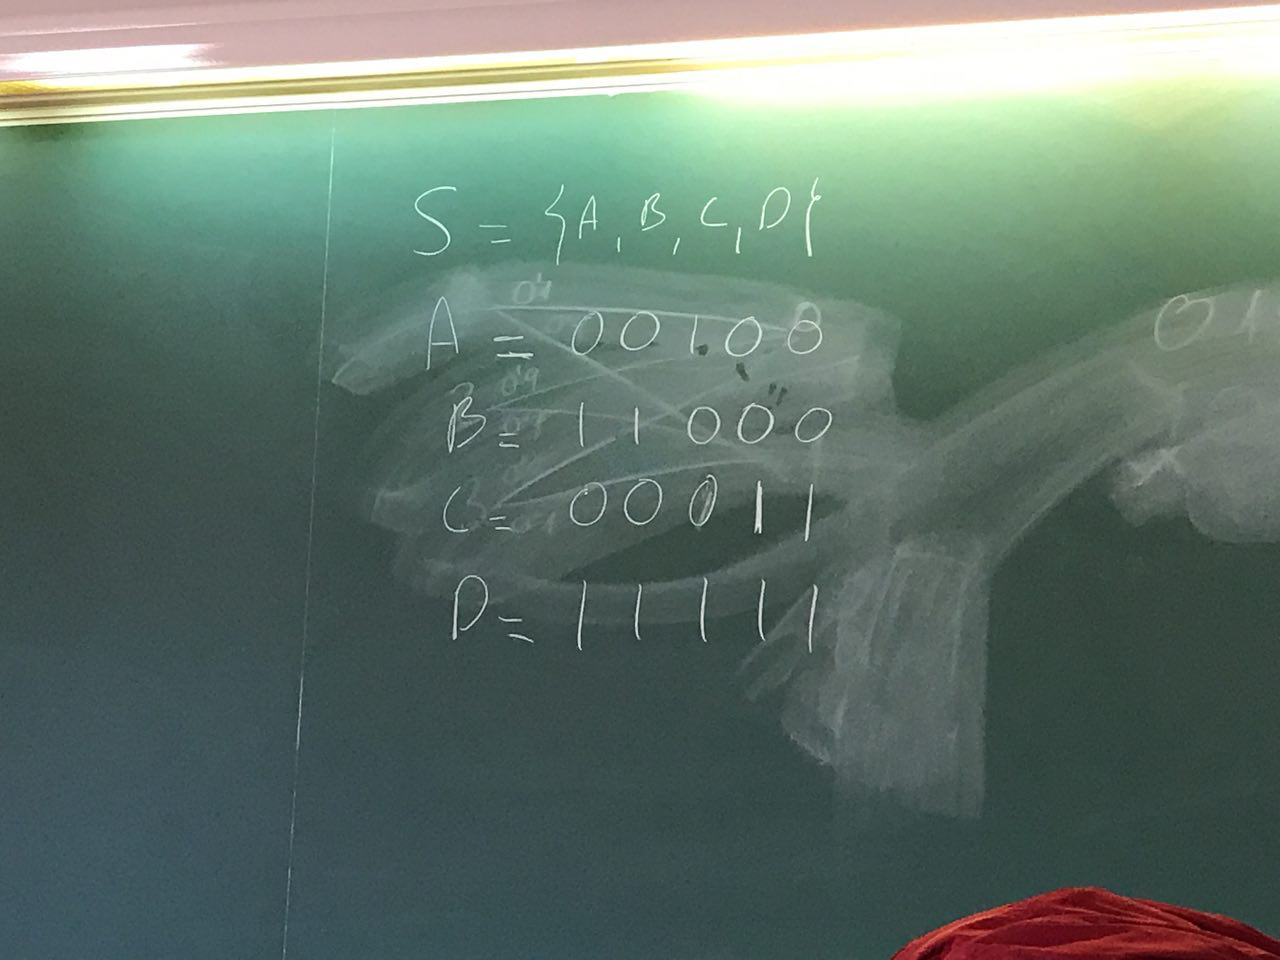 S = {A, B, C, D}
A = 00100
B = 11000
C = 00011
D = 11111